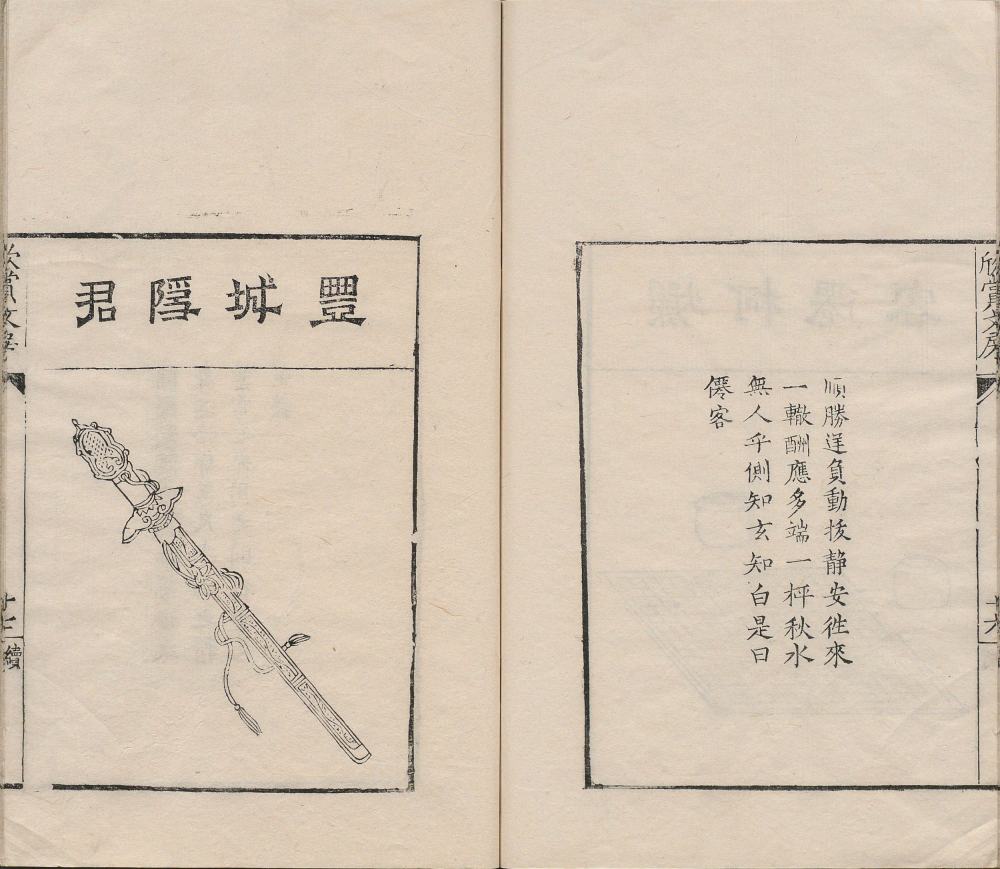 欣賞文房
十六
順勝逞負動拔静安徃來
一轍酬應多端一枰秋水
無人乎側知玄知白是曰
僊客
豐城隱君
欣賞文房
十七
續